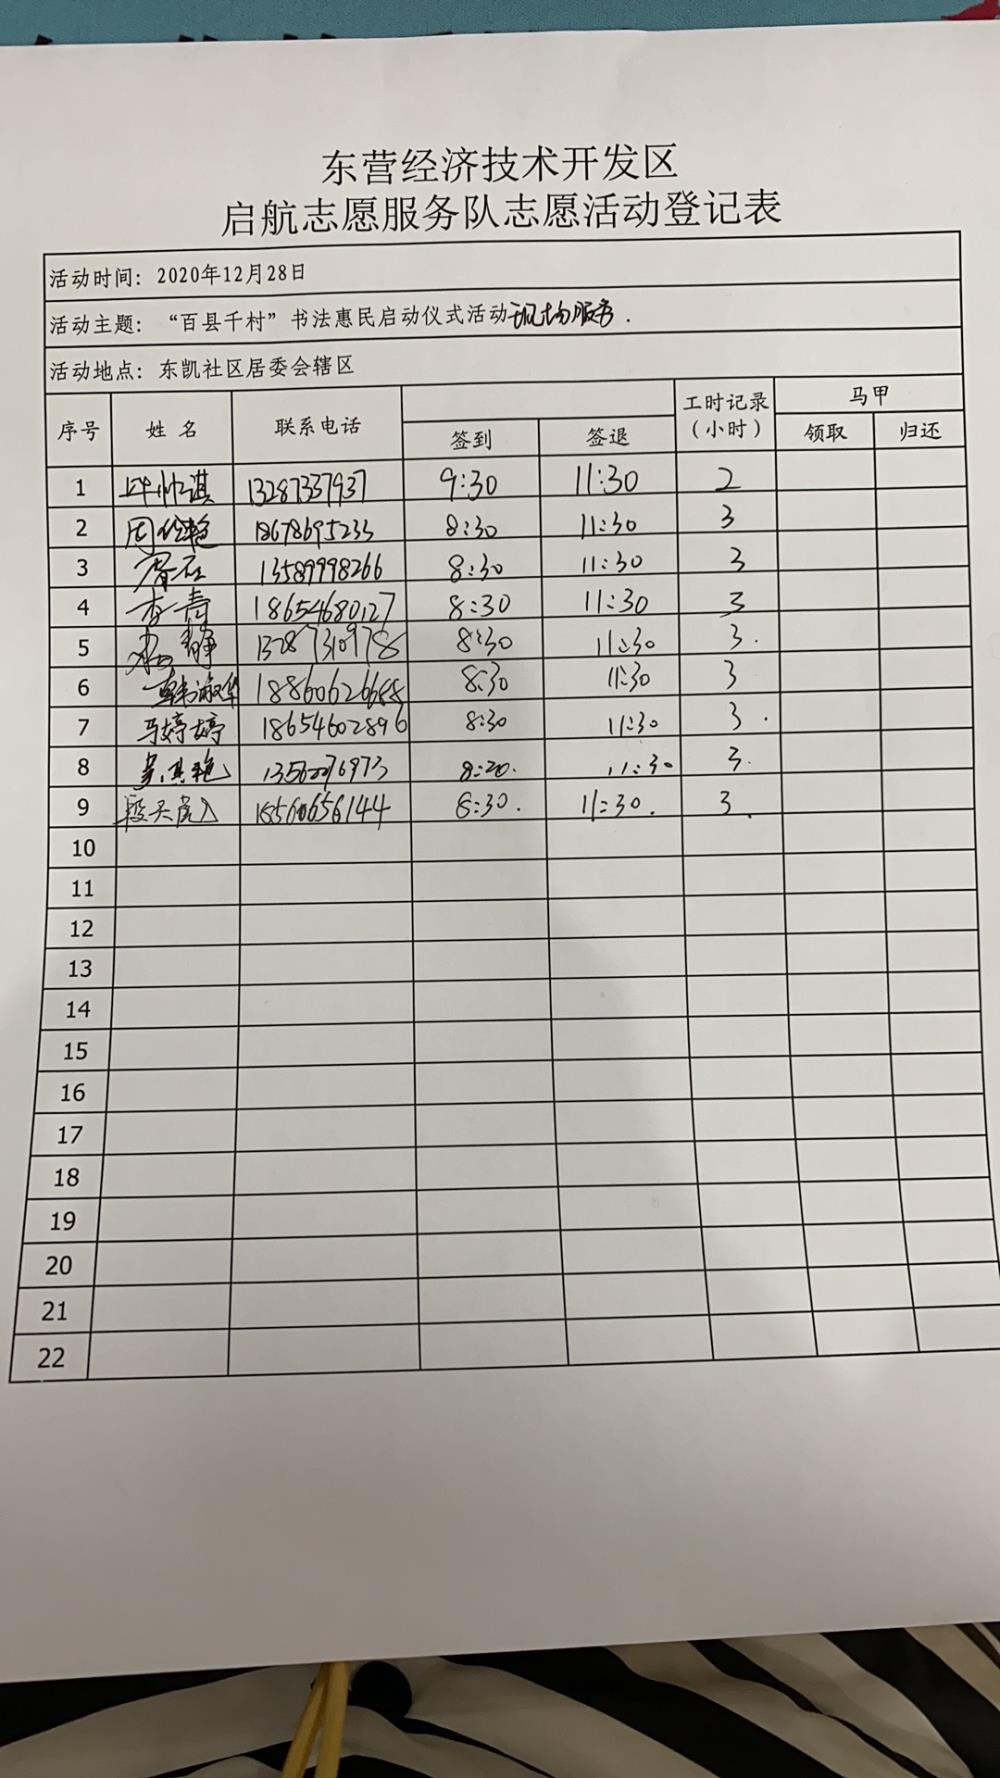 东营经济技术开发区
启航志愿服务队志愿活动登记表
活动时间：2020年12月28日
活动主题：“百县千村”书法惠民启动仪式活动现场服务.
活动地点：东凯社区居委会辖区
序号 姓 名 联系电话 签到 签退 工时记录（小时） 马甲 领取 归还
1 13287337937 9:30 11:30 2
2 18678695233 8:30 11:30 3
3 13589998266 8:30 11:30 3
4 李青 18654680127 8:30 11:30 3
5 静 13287310978 8:30 11:30 3.
6 韩淑华 18860626688 8:30 11:30 3
7 马婷婷 18654602896 8:30 11:30 3.
8 11:30 3.
9 18560656144 8:30. 11:30. 3.
10
11
12
13
14
15
16
17
18
19
20
21
22